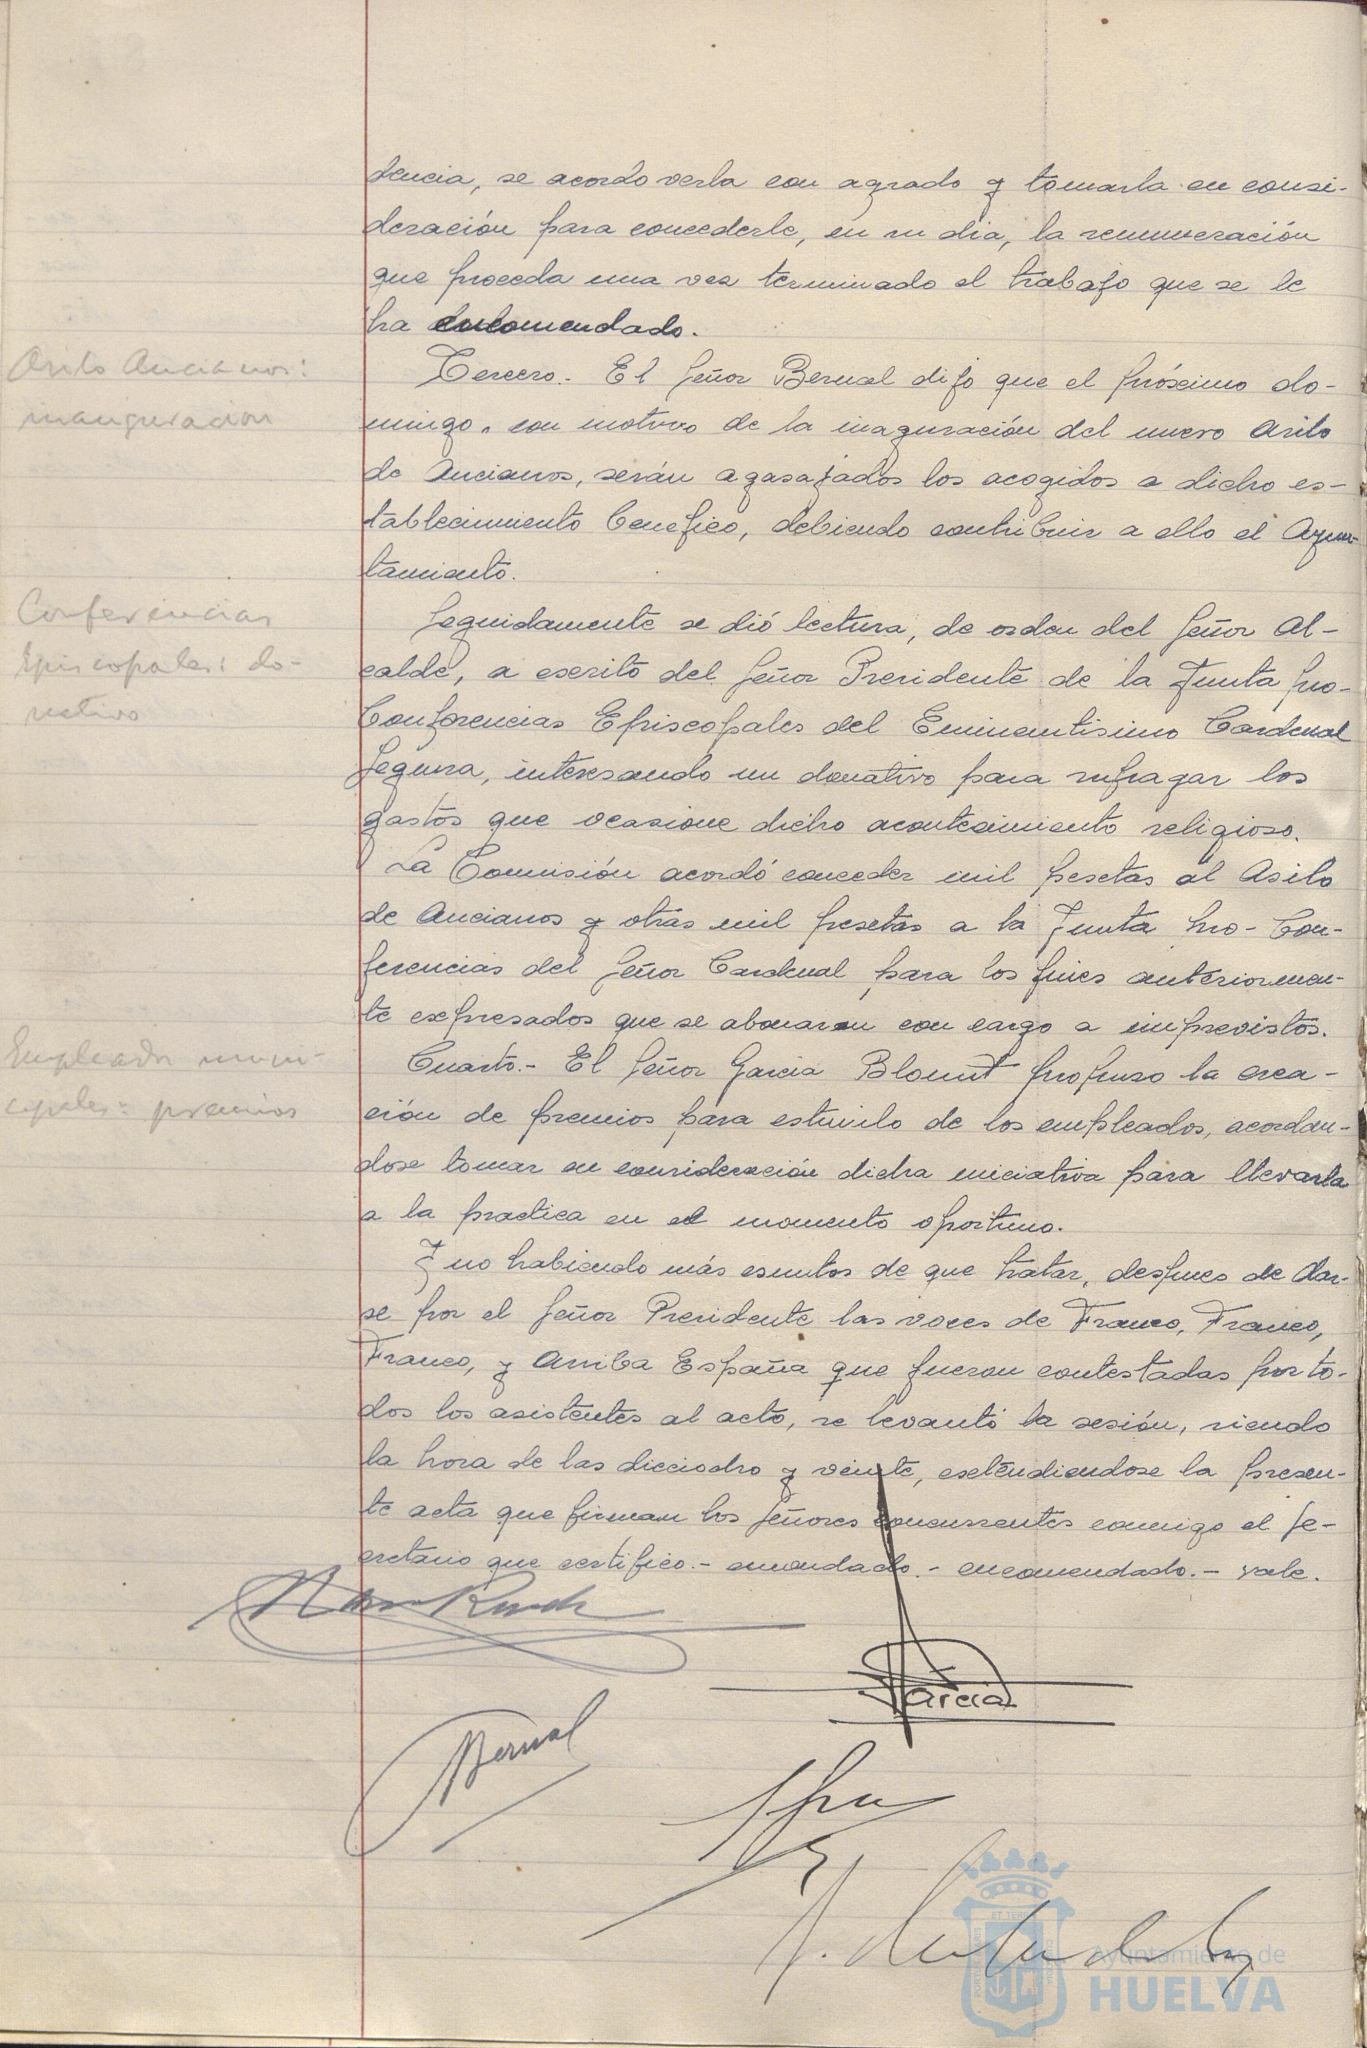 dencia, se acordo verla con agrado y tomarla en consi-
deración para concederle, en su dia, la remuneración
que proceda una vez terminado el trabajo que se le
ha encomendado.
Asilo Ancianos:
inauguracion
Tercero.- El Señor Bernal dijo que el próximo do-
mingo, con motivo de la inaguración del nuevo Asilo
de Ancianos, serán agasajados los acogidos a dicho es-
tablecimiento benefico, debiendo contribuir a ello el Ayun-
tamiento.
Conferencias
Episcopales: do-
nativo
Seguidamente se dió lectura, de orden del Señor Al-
calde, a escrito del Señor Presidente de la Junta pro-
Conferencias Episcopales del Eminentisimo Cardenal
Segura, interesando un donativo para sufragar los
gastos que ocasione dicho acontecimiento religioso.
La Comisión acordó conceder mil pesetas al Asilo
de Ancianos y otras mil pesetas a la Junta Pro-Con-
ferencias del Señor Cardenal para los fines anteriormen-
te expresados que se abonaran con cargo a imprevistos.
Empleados muni-
cipales: premios
Cuarto.- El Señor Garcia Blount propuso la crea-
ción de premios para estimulo de los empleados, acordan-
dose tomar en consideración dicha iniciativa para llevarla
a la practica en el momento oportuno.
Y no habiendo más asuntos de que tratar, despues de dar-
se por el Señor Presidente las voces de Franco, Franco,
Franco, y Arriba España que fueron contestadas por to-
dos los asistentes al acto, se levantó la sesión, siendo
la hora de las dieciocho y veinte, extendiendose la presen-
te acta que firman los Señores concurrentes conmigo el Se-
cretario que certifico.- enmendado.- encomendado.- vale.
Garcia
Bernal
ET TERRÆ
Ayuntamiento de
HUELVA